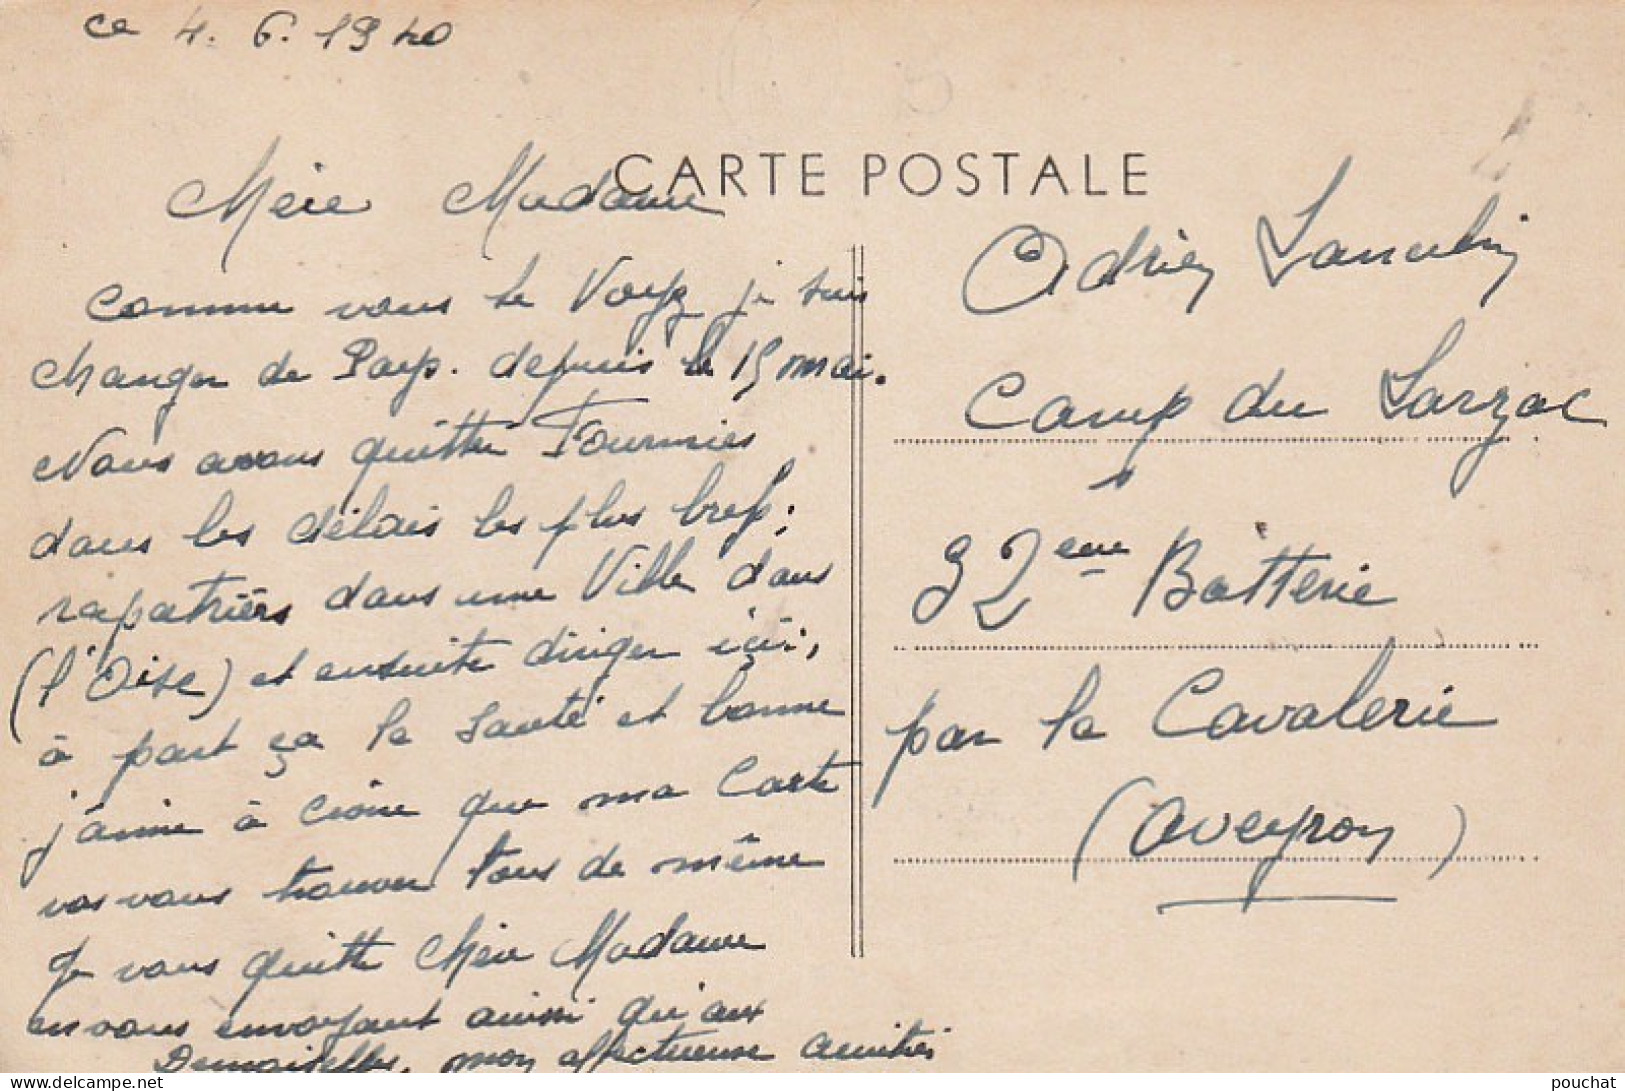 ce 4. 6. 1940
CARTE POSTALE
Chère Madame
comme vous le Voyez je suis
changer de Pays. depuis le 15 mai.
Nous avons quitté Fourmies
dans les délais les plus bref;
rapatriers dans une Ville dans
(l'Oise) et ensuite diriger içi,
à part ça la santé et bonne
j'aime à croire que ma Carte
vas vous trouver tous de même
Je vous quitte Chère Madame
en vous envoyant aussi qu'aux
Demoiselles, mon affectueuse amitiés
Adrien
Camp du Larzac
32eme Batterie
par la Cavalerie
(Aveyron)
© pouchat